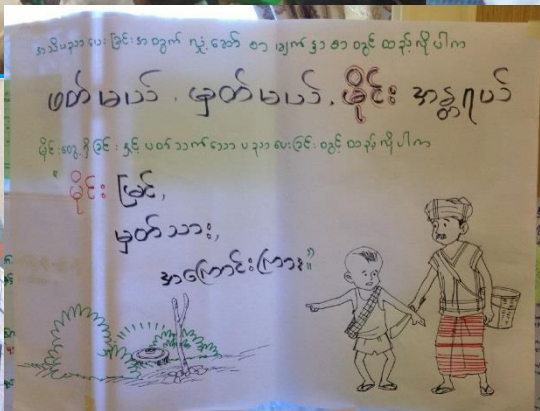 အသိပညာပေးခြင်းအတွက် လှုံ့ဆော် စာ ချက် နှာ စာ တွင် ထည့်လိုပါက
ဖတ်မယ်၊ မှတ်မယ်၊ မိုင်း အန္တရာယ်
မိုင်းတွေ့ရှိခြင်းနှင့် ပတ်သက်သော ပညာပေးခြင်းတွင် ထည့်လိုပါက
"မိုင်းမြင်၊
မှတ်သား၊
အကြောင်းကြား။"